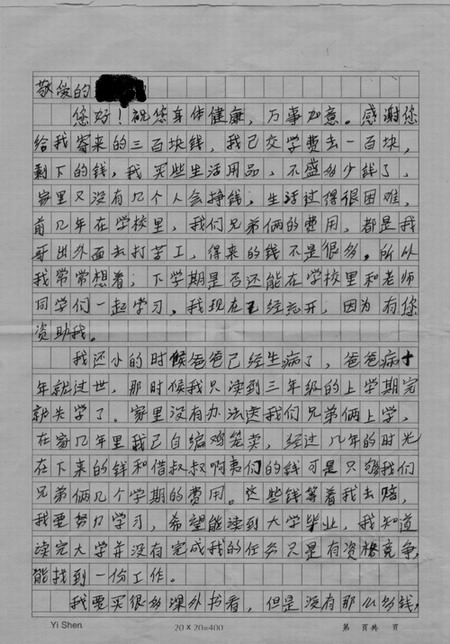 敬爱的
您好！祝您身体健康，万事如意。感谢您
给我寄来的三百块钱，我已交学费去一百块，
剩下的钱，我买些生活用品，不盛多少钱了，
家里又没有几个人会挣钱，生活过得很困难，
前几年在学校里，我们兄弟俩的费用，都是我
哥出外面去打苦工，得来的钱不是很多。所以
我常常想着，下学期是否还能在学校里和老师
同学们一起学习。我现在已经忘开，因为有您
资助我。
我还小的时候爸爸已经生病了，爸爸病十
年就过世，那时候我只读到三年级的上学期完
就失学了。家里没有办法送我们兄弟俩上学，
在家几年里我己自编鸡笼卖，经过几年的时光
在下来的钱和借叔叔啊夷们的钱可是只够我们
兄弟俩几个学期的费用。这些钱等着我去赔，
我要努力学习，希望能读到大学毕业，我知道
读完大学并没有完成我的任务只是有资格竞争，
能找到一份工作。
我要买很多课外书看，但是没有那么多钱，
Yi Shen 20×20=400 第 页共 页